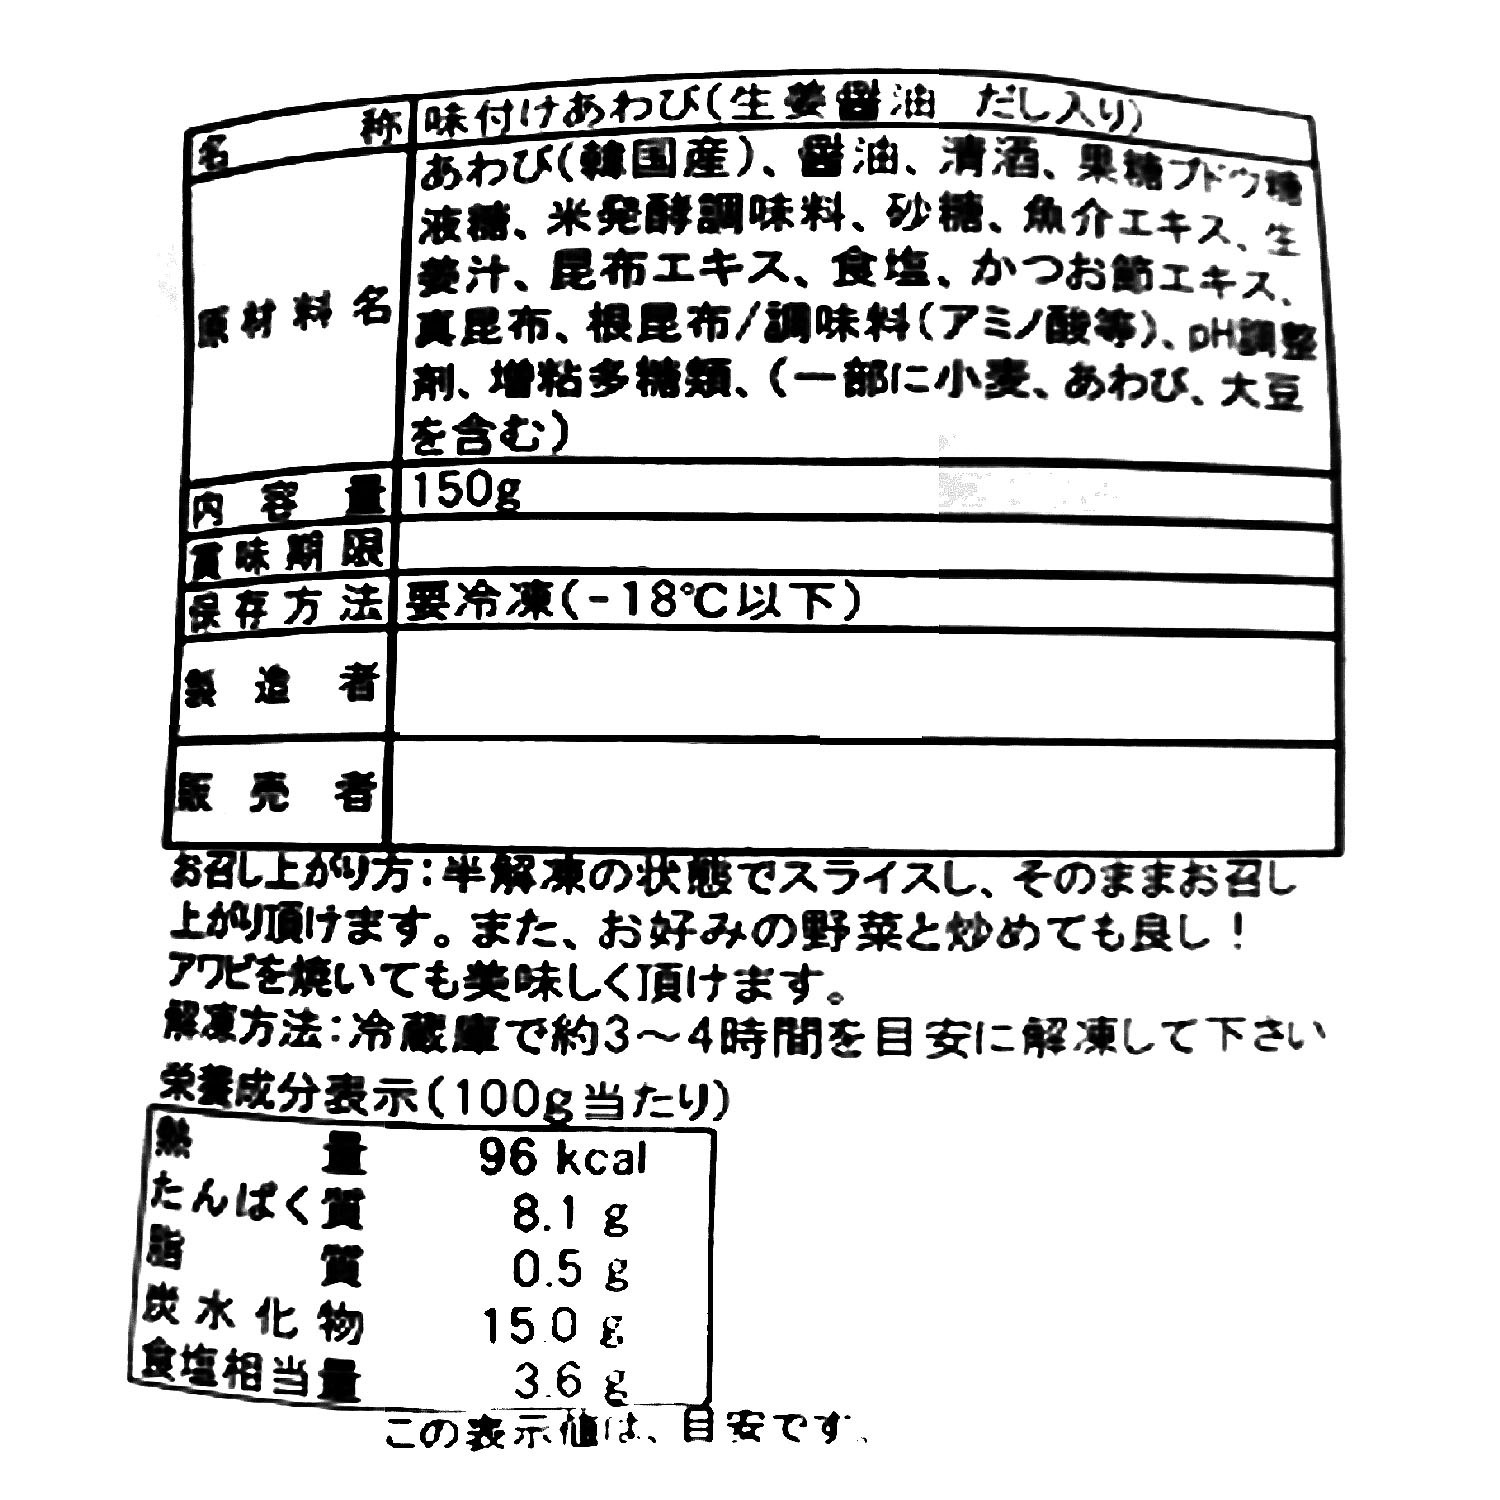 名称 味付けあわび(生姜醤油 だし入り)
原材料名 あわび(韓国産)、醤油、清酒、果糖ブドウ糖
液糖、米発酵調味料、砂糖、魚介エキス、生
姜汁、昆布エキス、食塩、かつお節エキス、
真昆布、根昆布/調味料(アミノ酸等)、pH調整
剤、増粘多糖類、(一部に小麦、あわび、大豆
を含む)
内容量 150g
賞味期限
保存方法 要冷凍(-18℃以下)
製造者
販売者
お召し上がり方:半解凍の状態でスライスし、そのままお召し
上がり頂けます。また、お好みの野菜と炒めても良し!
アワビを焼いても美味しく頂けます。
解凍方法:冷蔵庫で約3～4時間を目安に解凍して下さい
栄養成分表示(100g当たり)
熱量 96 kcal
たんぱく質 8.1 g
脂質 0.5 g
炭水化物 15.0 g
食塩相当量 3.6 g
この表示値は、目安です。